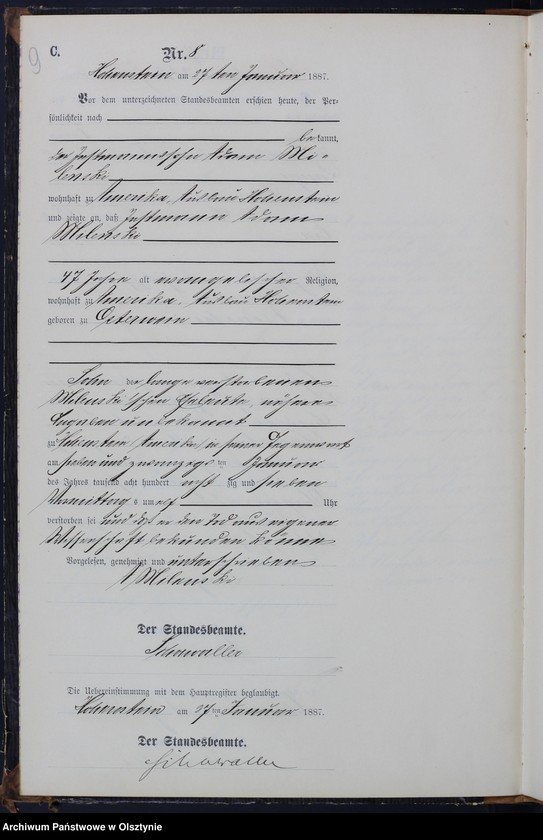 9
C.
Nr. 8
Hohenstein am 27ten Januar 1887.
Vor dem unterzeichneten Standesbeamten erschien heute, der Per-
sönlichkeit nach
be kannt,
der Instmannssohn Adam Mi-
lenski
wohnhaft zu Amerika, Ausbau Hohenstein
und zeigte an, daß Instmann Adam
Milenski
47 Jahre alt evangelischer Religion,
wohnhaft zu Amerika, Ausbau Hohenstein
geboren zu
Sohn der lange verstorbenen
Milenski'schen Eheleute, nähere
Angaben unbekannt
zu Hohenstein Amerika in seiner Gegenwart
am sieben und zwanzigsten Januar
des Jahres tausend acht hundert acht zig und sieben
Vormittags um elf Uhr
verstorben sei und daß er den Tod aus eigener
Wissenschaft bekunden könne
Vorgelesen, genehmigt und unterschrieben
A Milenski
Der Standesbeamte.
Die Uebereinstimmung mit dem Hauptregister beglaubigt.
Hohenstein am 27ten Januar 1887.
Der Standesbeamte.
Archiwum Państwowe w Olsztynie